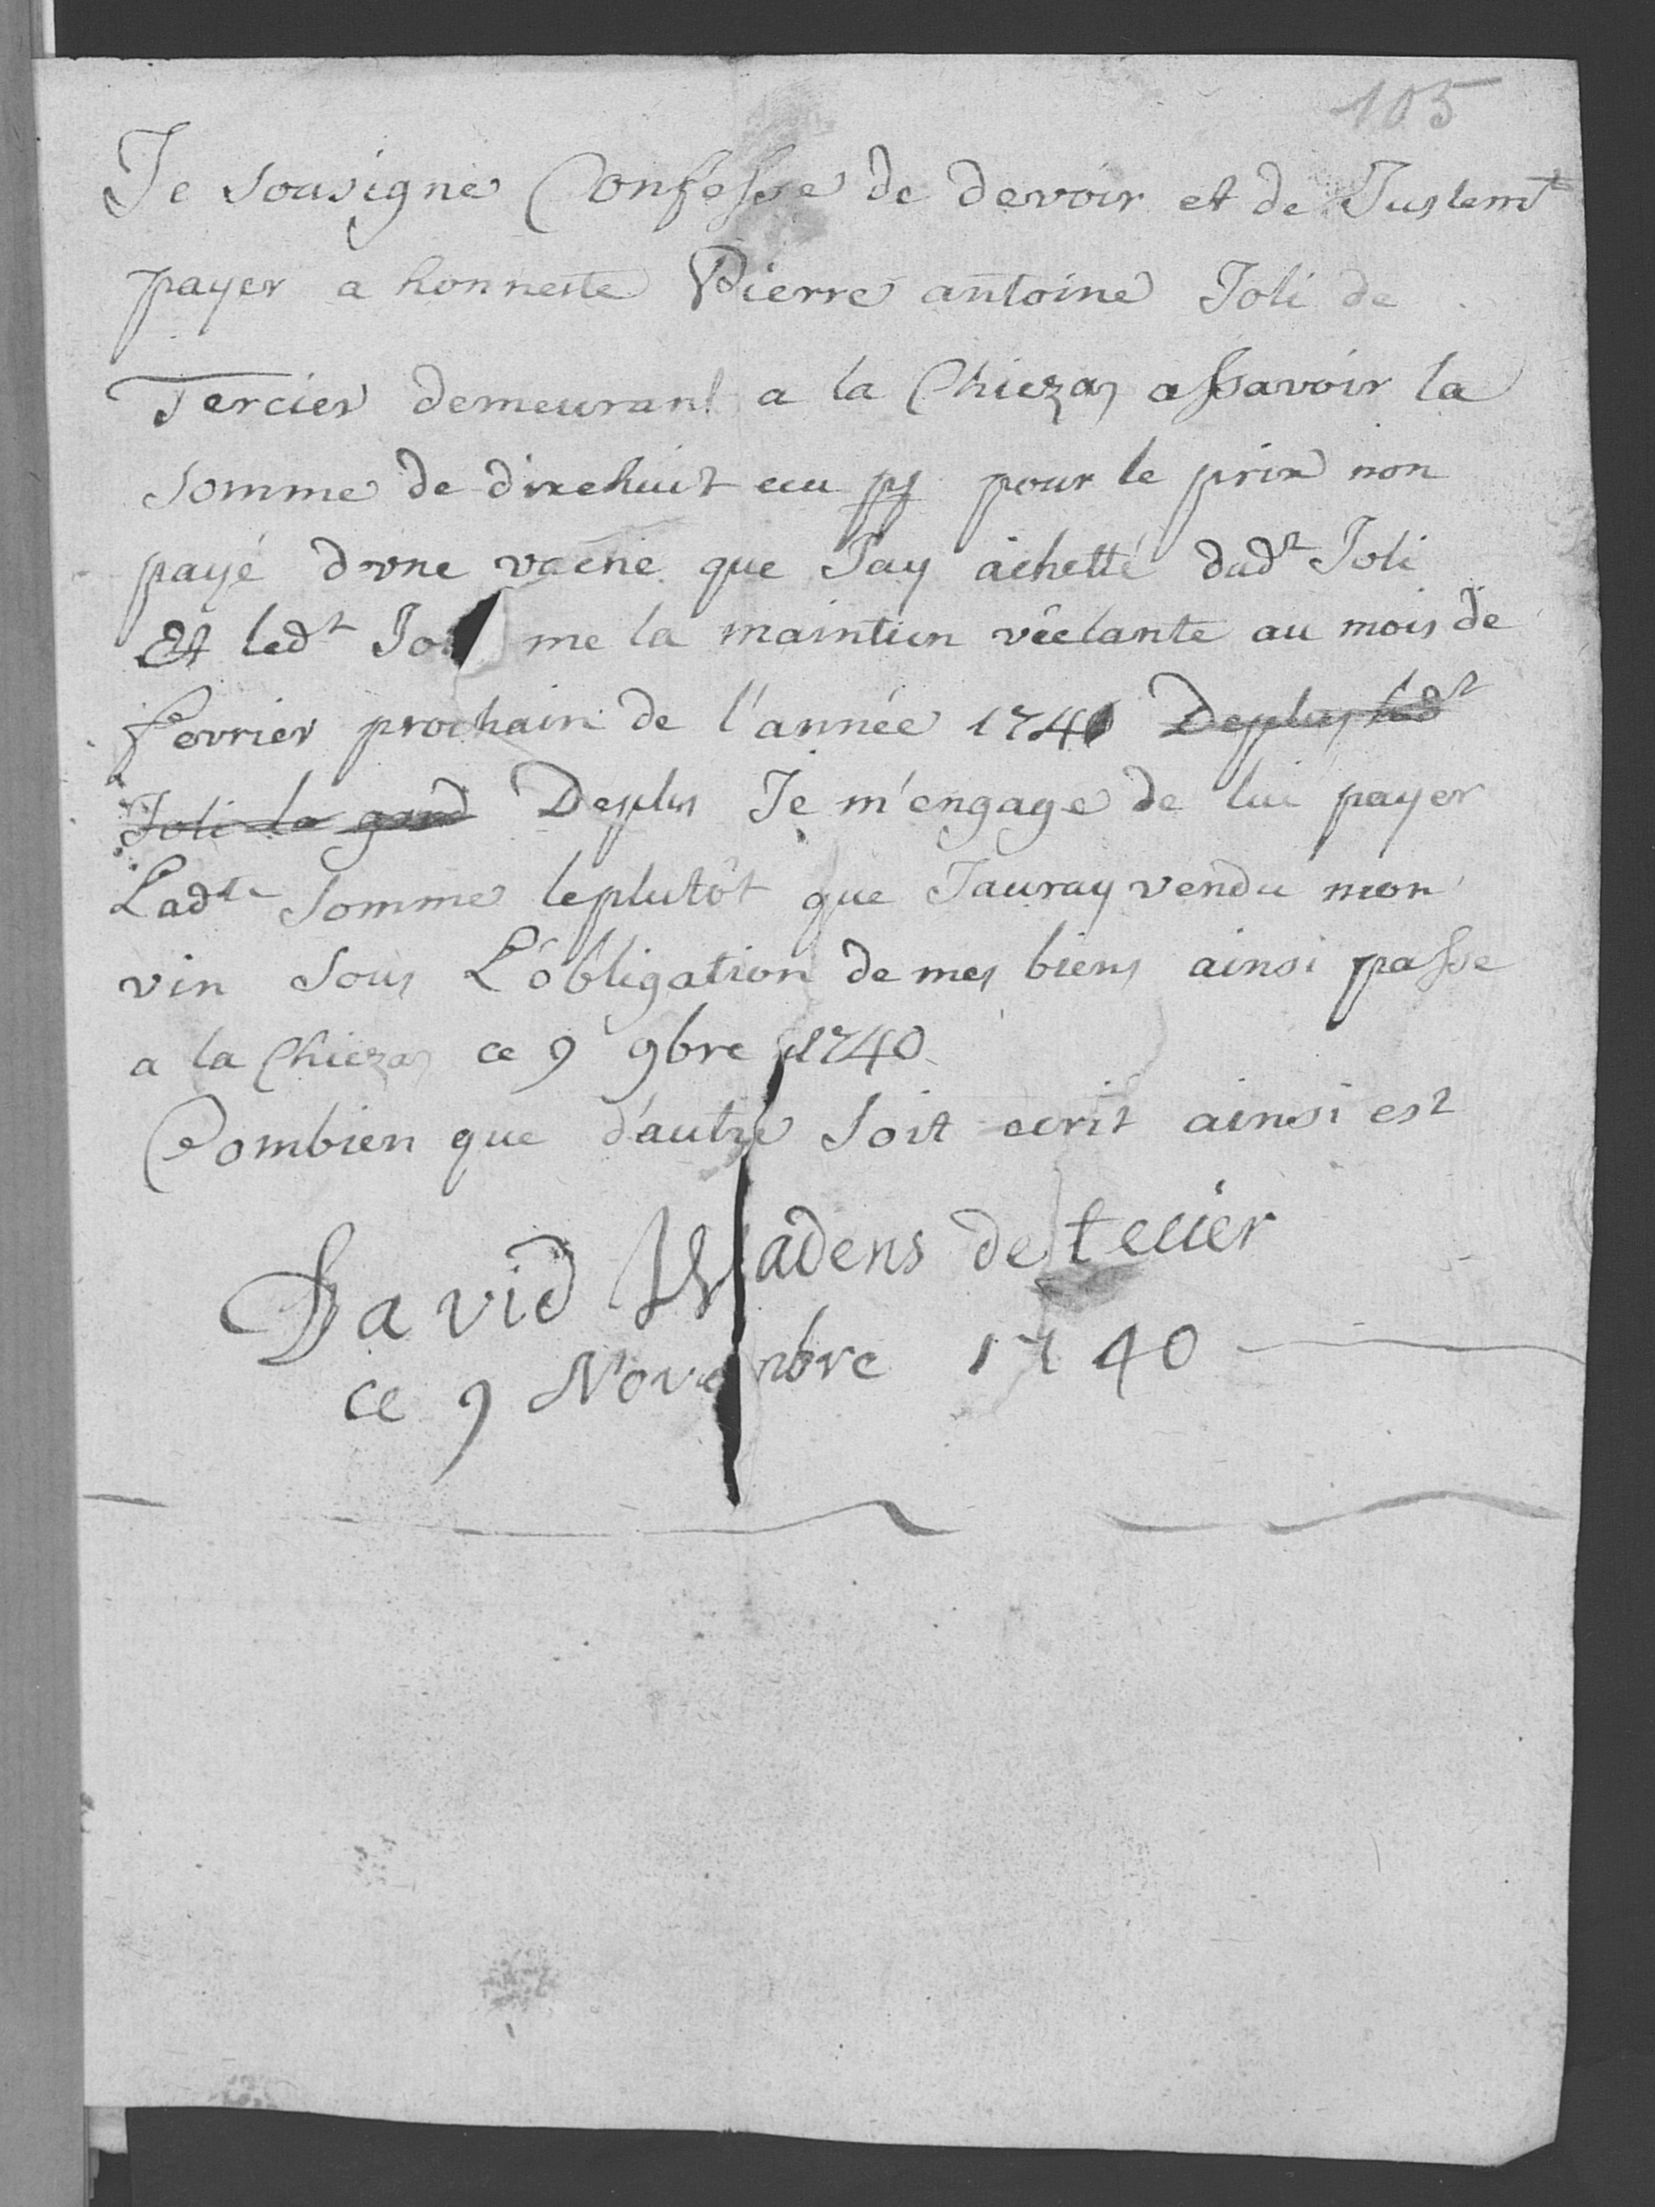 105
Je Sousigne Confesse de devoir et de Justemt
payer a honneste Pierre antoine Joli de
Tercier demeurant a la Chiezaz assavoir la
Somme de dixehuit ecu pf pour le prix non
payé dvne vache que Jay achetté dudt Joli
Et ledt Jo me la maintien vêelante au mois de
fevrier prochain de l'année 1741 Deplus ledt
Joli la Deplus Je m'engage de lui payer
Ladte Somme leplutôt que Jauray vendu mon
vin Sous L'obligation de mes biens ainsi passe
a la Chiezaz ce 9 9bre 1740
Combien que d'autre Soit ecrit ainsi est
David Madens de tecier
ce 9 Novenbre 1740